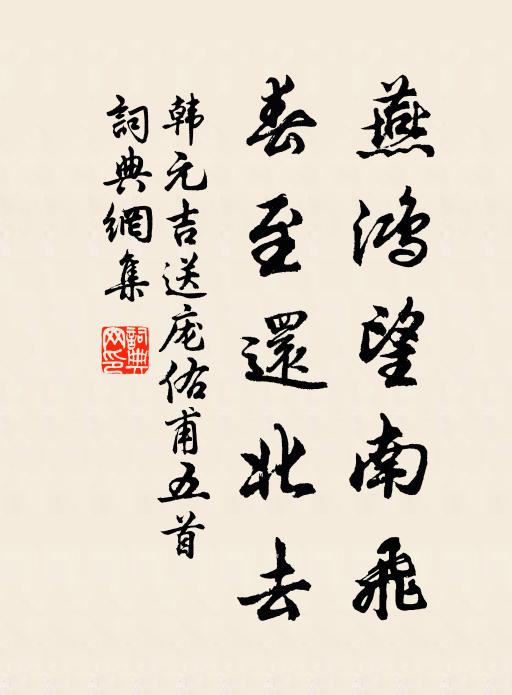 燕鴻望南飛
春至還北去
韩元吉送庞佑甫五首
詞典網集
詞典网印